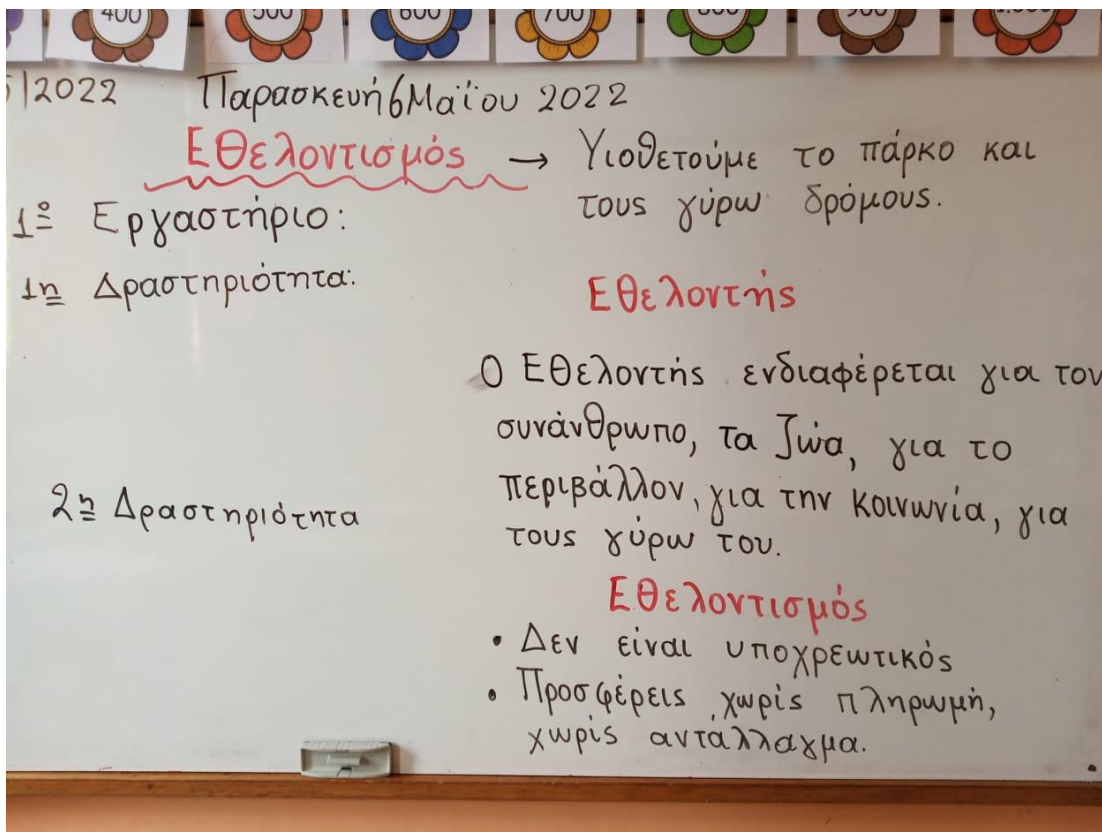 400 500 600 700 800 900 1.000
5/2022 Παρασκευή 6 Μαΐου 2022
Εθελοντισμός → Υιοθετούμε το πάρκο και
τους γύρω δρόμους.
1º Εργαστήριο:
1η Δραστηριότητα:
Εθελοντής
Ο Εθελοντής ενδιαφέρεται για τον
συνάνθρωπο, τα ζώα, για το
περιβάλλον, για την κοινωνία, για
τους γύρω του.
2η Δραστηριότητα
Εθελοντισμός
• Δεν είναι υποχρεωτικός
• Προσφέρεις χωρίς πληρωμή,
χωρίς αντάλλαγμα.